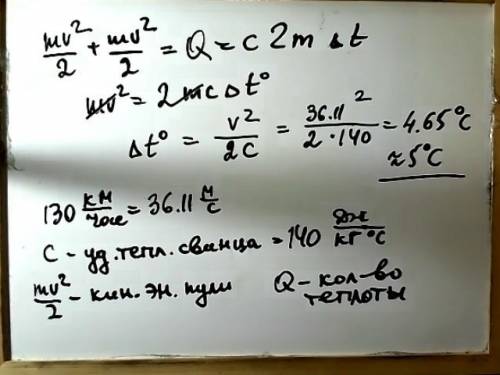 mv²/2 + mv²/2 = Q = c 2m Δt
mv² = 2mcΔt°
Δt° = v²/2c = 36.11²/2·140 = 4.65°C
≈5°C
130 км/час = 36.11 м/с
C – уд. тепл. свинца = 140 Дж/кг°C
mv²/2 – кин. эн. пули
Q – кол-во теплоты